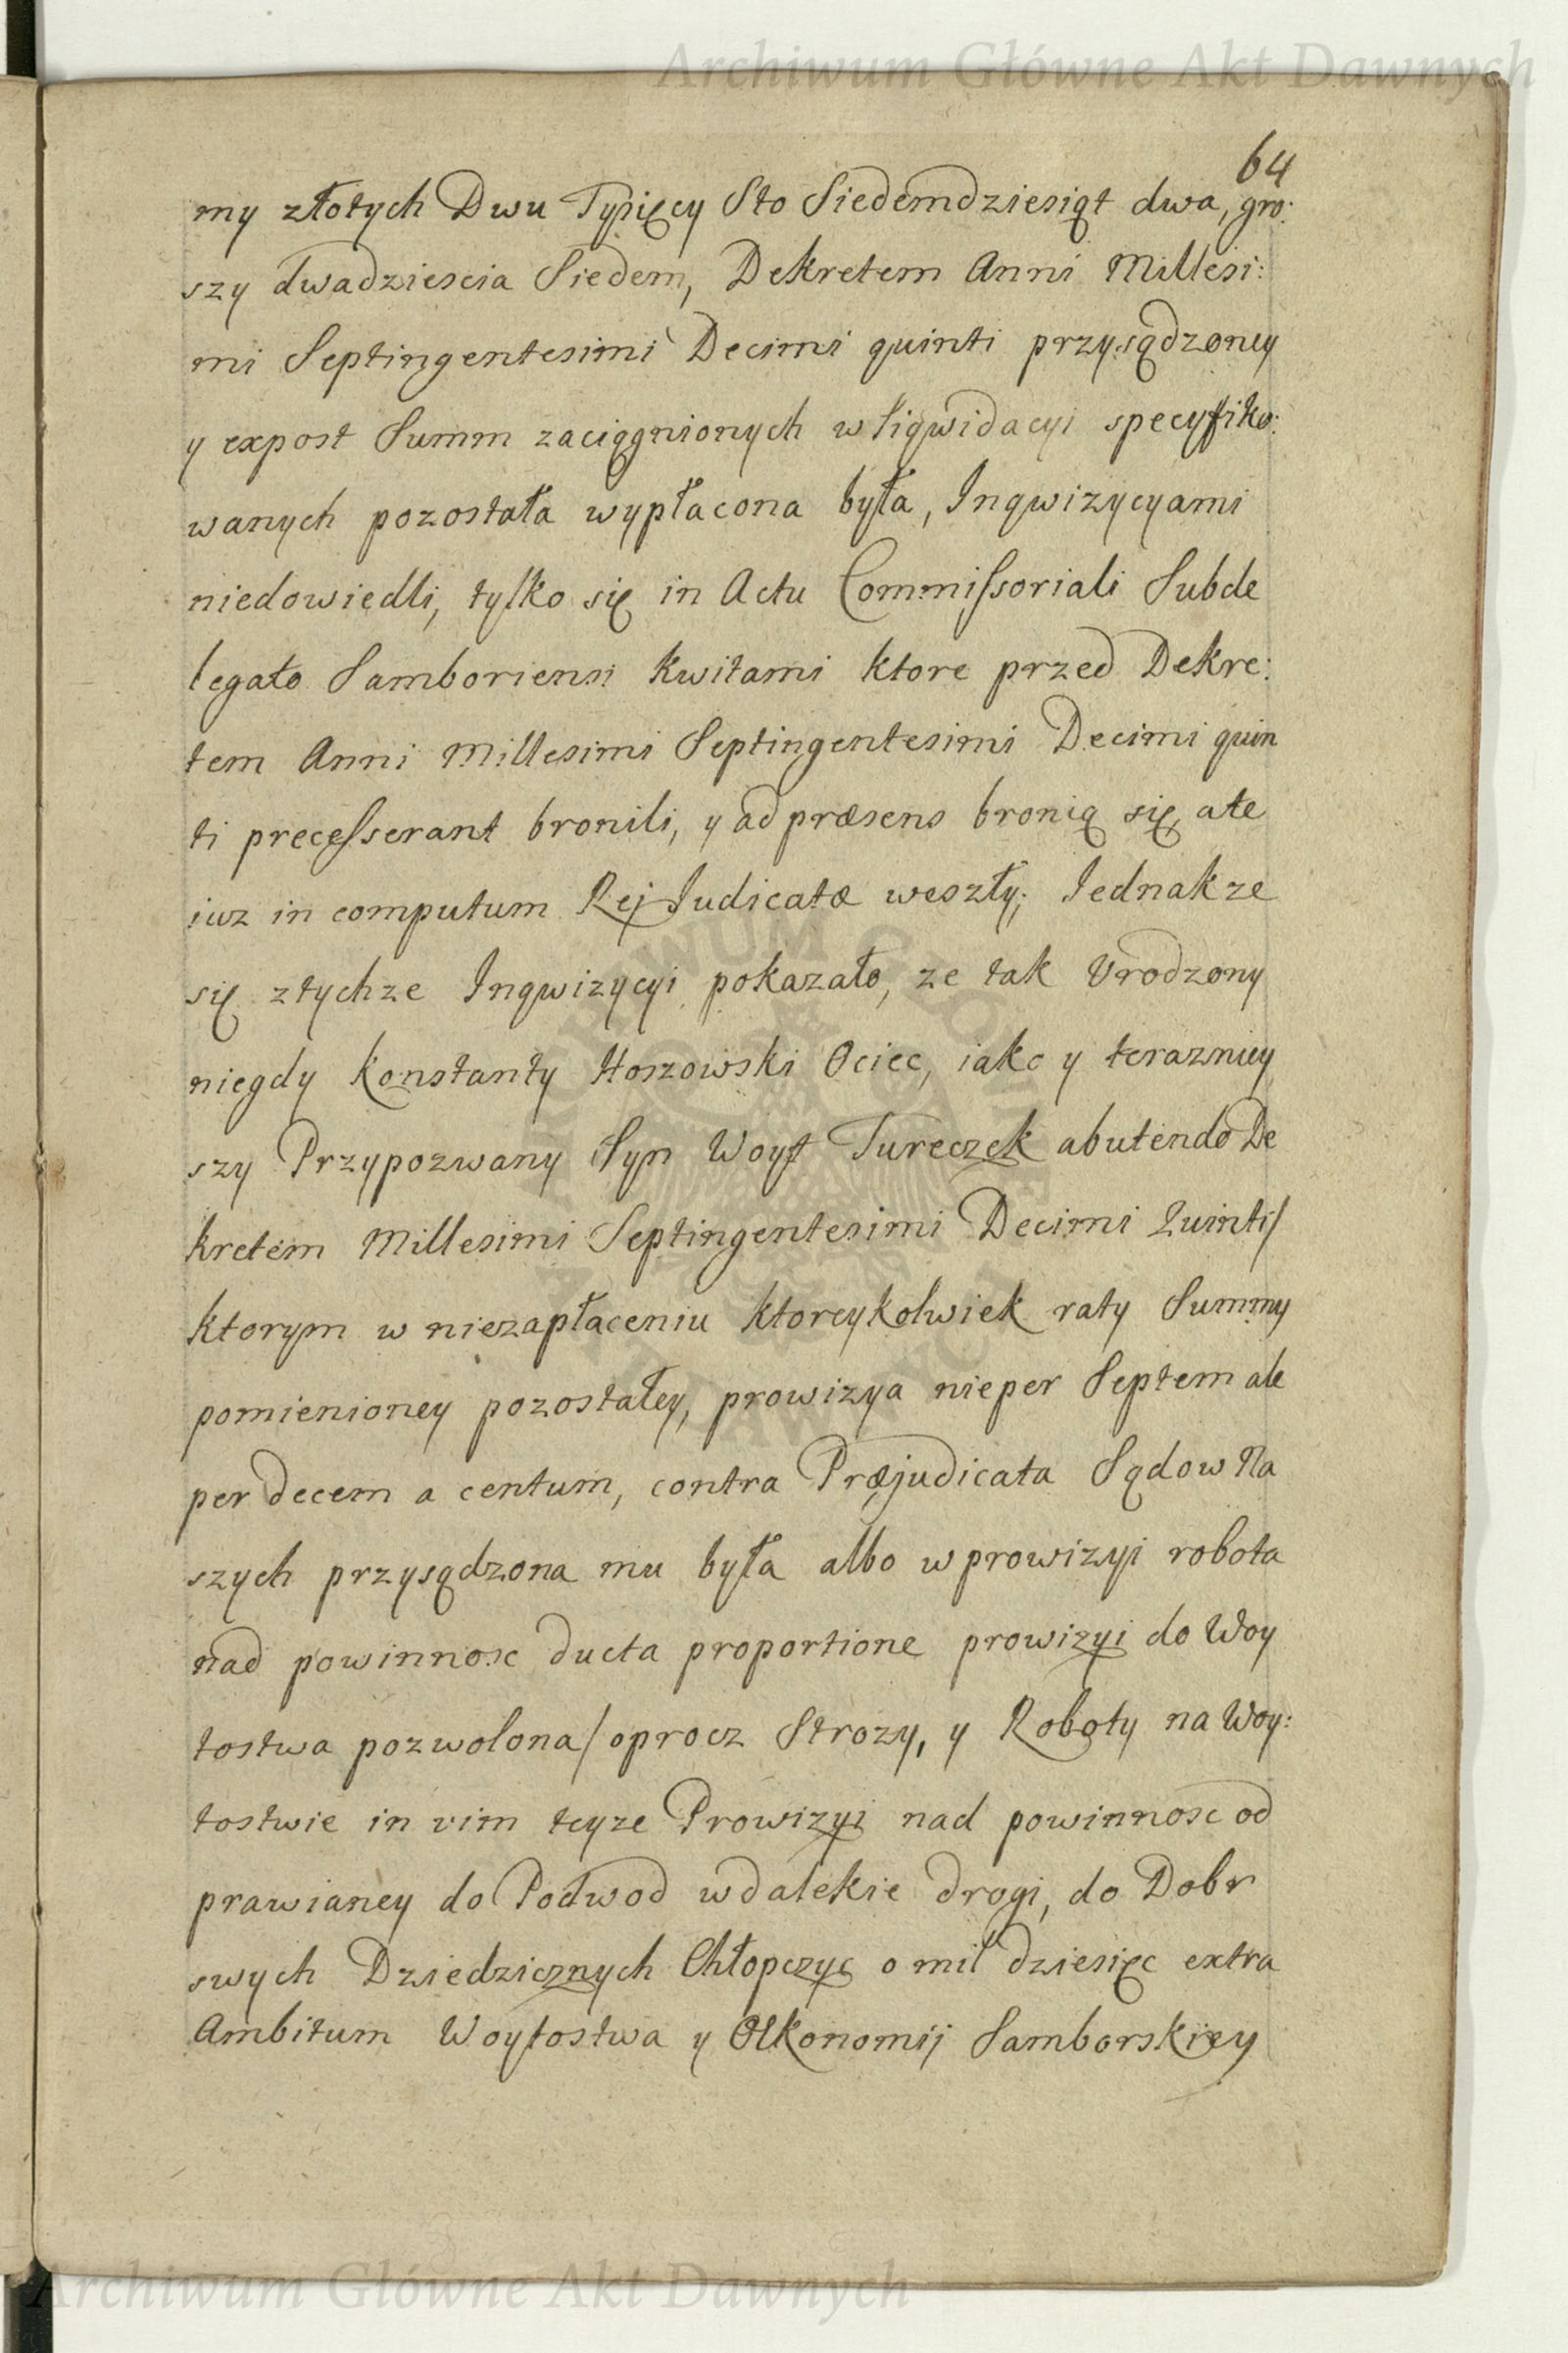 Archiwum Główne Akt Dawnych
64
my złotych Dwu Tysięcy Sto Siedemdziesiąt dwa, gro:
szy dwadziescia Siedem, Dekretem Anni Millesi:
mi Septingentesimi Decimi quinti przysądzoney
y expost Summ zaciągnionych w liqwidacyi specyfiko:
wanych pozostała wypłacona była, Inqwizycyami
niedowiedli, tylko się in Actu Commissoriali Subde
legato Samboriensi kwitami ktore przed Dekre:
tem Anni Millesimi Septingentesimi Decimi quin
ti precesserant bronili, y ad præsens bronią się, ale
iuz in computum Rej Judicatæ weszły; Jednakze
się ztychze Inqwizycyi pokazało, ze tak Urodzony
niegdy Konstanty Hoszowski Ociec, iako y terazniey
szy Przypozwany Syn Woyt Tureczek abutendo De
kretem Millesimi Septingentesimi Decimi Quinti/
ktorym w niezapłaceniu ktoreykolwiek raty Summy
pomienioney pozostałey, prowizya nieper Septem ale
per decem a centum, contra Præjudicata Sądow Na
szych przysądzona mu była albo w prowizyi robota
nad powinnosc ducta proportione prowizyi do Woy
tostwa pozwolona/ oprocz Strozy, y Roboty na Woy:
tostwie in vim teyze Prowizyi nad powinnosc od
prawianey do Podwod wdalekie drogi, do Dobr
swych Dziedzicznych Chłopczyc o mil dziesięc extra
Ambitum Woytostwa y Olkonomij Samborskiey
Archiwum Główne Akt Dawnych